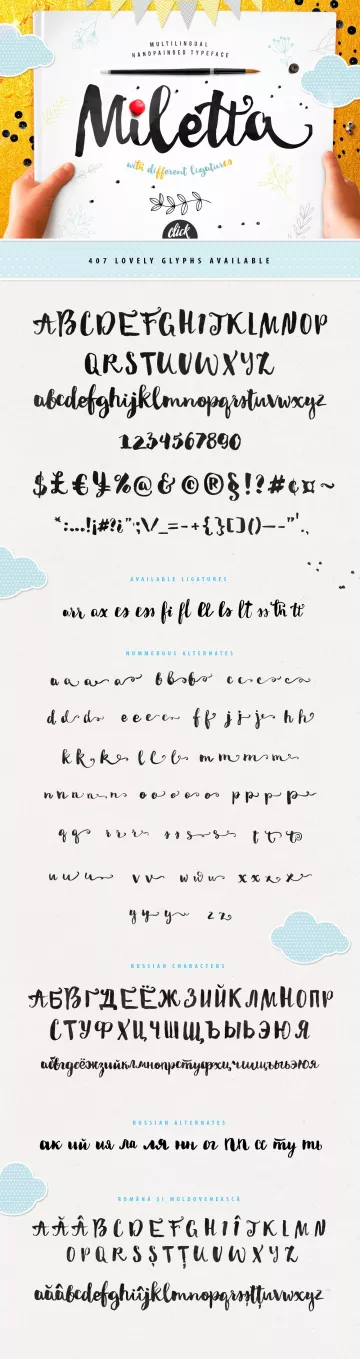 MULTILINGUAL
HANDPAINDED TYPEFACE
Miletta
with different ligatures
click
407 LOVELY GLYPHS AVAILABLE
ABCDEFGHIJKLMNOP
QRSTUVWXYZ
abcdefghijklmnopqrstuvwxyz
1234567890
$£€¥%@&©®§!?#¢¤~
*:...!¡#?¿"";\/_=-+{}[]()—-"'.,
AVAILABLE LIGATURES
arr ax es ess fi fl ll ls lt ss th tt
NUMMEROUS ALTERNATES
a a a a a b b b b c c c c c
d d d d e e e e f f j j j h h
k k k l l l m m m m
n n n n n o o o o o p p p p
q q r r r s s s s t t t
u u u v v w w x x x x
y y y z z
RUSSIAN CHARACTERS
АБВГДЕЁЖЗИЙКЛМНОПР
СТУФХЦЧШЩЪЫЬЭЮЯ
абвгдеёжзийклмнопрстуфхцчшщъыьэюя
RUSSIAN ALTERNATES
ак ий ия ла ля нн ог пп сс ту ть
ROMÂNĂ ȘI MOLDOVENEASCĂ
AĂÂBCDEFGHIÎJKLMN
OPQRSȘTȚUVWXYZ
aăâbcdefghiîjklmnopqrsștțuvwxyz